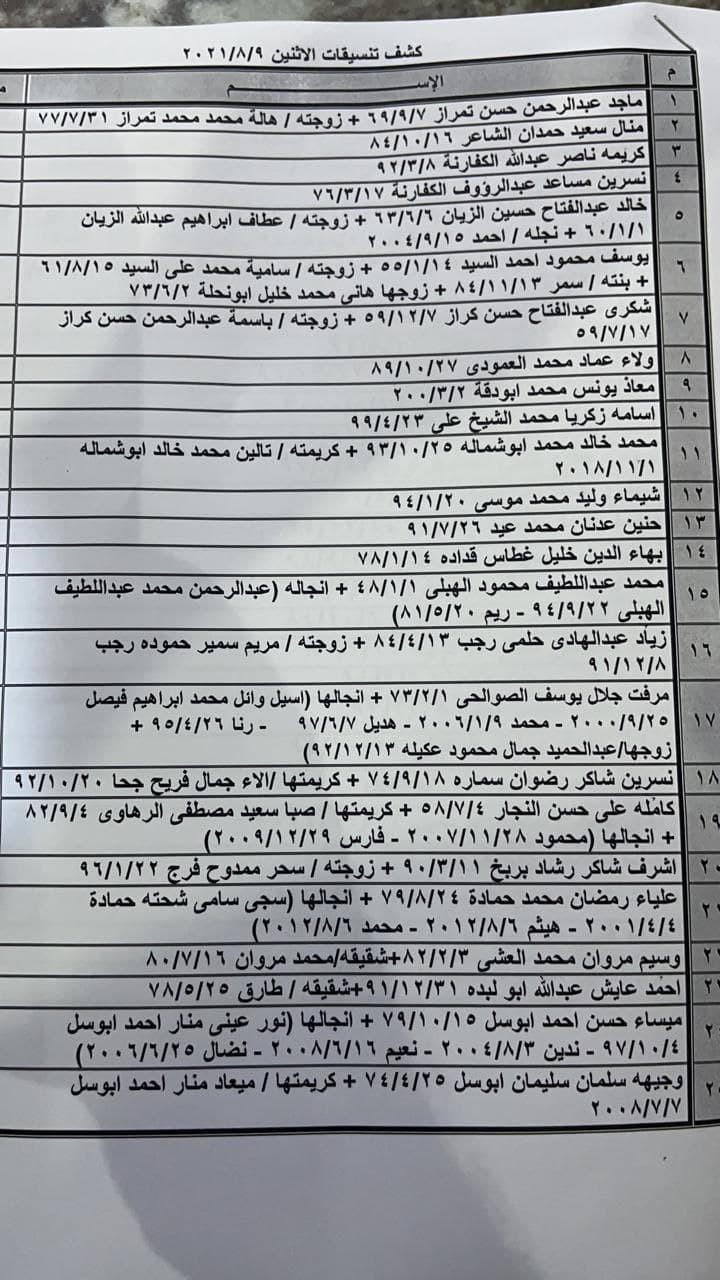 كشف تنسيقات الاثنين ٢٠٢١/٨/٩
م الإســـــــــم
١ ماجد عبدالرحمن حسن تمراز ٦٩/٩/٧ + زوجته / هالة محمد محمد تمراز ٧٧/٧/٣١
٢ منال سعيد حمدان الشاعر ٨٤/١٠/١٦
٣ كريمه ناصر عبدالله الكفارنة ٩٢/٣/٨
٤ نسرين مساعد عبدالرؤوف الكفارنة ٧٦/٣/١٧
٥ خالد عبدالفتاح حسين الزيان ٦٣/٦/٦ + زوجته / عطاف ابراهيم عبدالله الزيان
٦٠/١/١ + نجله / احمد ٢٠٠٤/٩/١٥
٦ يوسف محمود احمد السيد ٥٥/١/١٤ + زوجته / سامية محمد على السيد ٦١/٨/١٥
+ بنته / سمر ٨٤/١١/١٣ + زوجها هانى محمد خليل ابونحلة ٧٣/٦/٢
٧ شكرى عبدالفتاح حسن كراز ٥٩/١٢/٧ + زوجته / باسمة عبدالرحمن حسن كراز
٥٩/٧/١٧
٨ ولاء عماد محمد العمودى ٨٩/١٠/٢٧
٩ معاذ يونس محمد ابودقة ٢٠٠/٣/٢
١٠ اسامه زكريا محمد الشيخ على ٩٩/٤/٢٣
١١ محمد خالد محمد ابوشماله ٩٣/١٠/٢٥ + كريمته / تالين محمد خالد ابوشماله
٢٠١٨/١١/١
١٢ شيماء وليد محمد موسى ٩٤/١/٢٠
١٣ حنين عدنان محمد عيد ٩١/٧/٢٦
١٤ بهاء الدين خليل غطاس قداده ٧٨/١/١٤
١٥ محمد عبداللطيف محمود الهبلى ٤٨/١/١ + انجاله (عبدالرحمن محمد عبداللطيف
الهبلى ٩٤/٩/٢٢ - ريم ٨١/٥/٢٠)
١٦ زياد عبدالهادى حلمى رجب ٨٤/٤/١٣ + زوجته / مريم سمير حموده رجب
٩١/١٢/٨
١٧ مرفت جلال يوسف الصوالحى ٧٣/٢/١ + انجالها (اسيل وائل محمد ابراهيم فيصل
٢٠٠٠/٩/٢٥ - محمد ٢٠٠٦/١/٩ - هديل ٩٧/٦/٧ - رنا ٩٥/٤/٢٦ +
زوجها/عبدالحميد جمال محمود عكيله ٩٢/١٢/١٣)
١٨ نسرين شاكر رضوان سماره ٧٤/٩/١٨ + كريمتها /الاء جمال فريح جحا ٩٢/١٠/٢٠
١٩ كامله على حسن النجار ٥٨/٧/٤ + كريمتها / صبا سعيد مصطفى الرهاوى ٨٢/٩/٤
+ انجالها (محمود ٢٠٠٧/١١/٢٨ - فارس ٢٠٠٩/١٢/٢٩)
اشرف شاكر رشاد بربخ ٩٠/٣/١١ + زوجته / سحر ممدوح فرج ٩٦/١/٢٢
علياء رمضان محمد حمادة ٧٩/٨/٢٤ + انجالها (سجى سامى شحته حمادة
٢٠٠١/٤/٤ - هيثم ٢٠١٢/٨/٦ - محمد ٢٠١٢/٨/٦)
وسيم مروان محمد العشى ٨٢/٢/٣+شقيقه/محمد مروان ٨٠/٧/١٦
احمد عايش عبدالله ابو لبده ٩١/١٢/٣١+شقيقه / طارق ٧٨/٥/٢٥
ميساء حسن احمد ابوسل ٧٩/١٠/١٥ + انجالها (نور عينى منار احمد ابوسل
٩٧/١٠/٤ - ندين ٢٠٠٤/٨/٣ - نعيم ٢٠٠٨/٦/١٦ - نضال ٢٠٠٦/٦/٢٥)
وجيهه سلمان سليمان ابوسل ٧٤/٤/٢٥ + كريمتها / ميعاد منار احمد ابوسل
٢٠٠٨/٧/٧